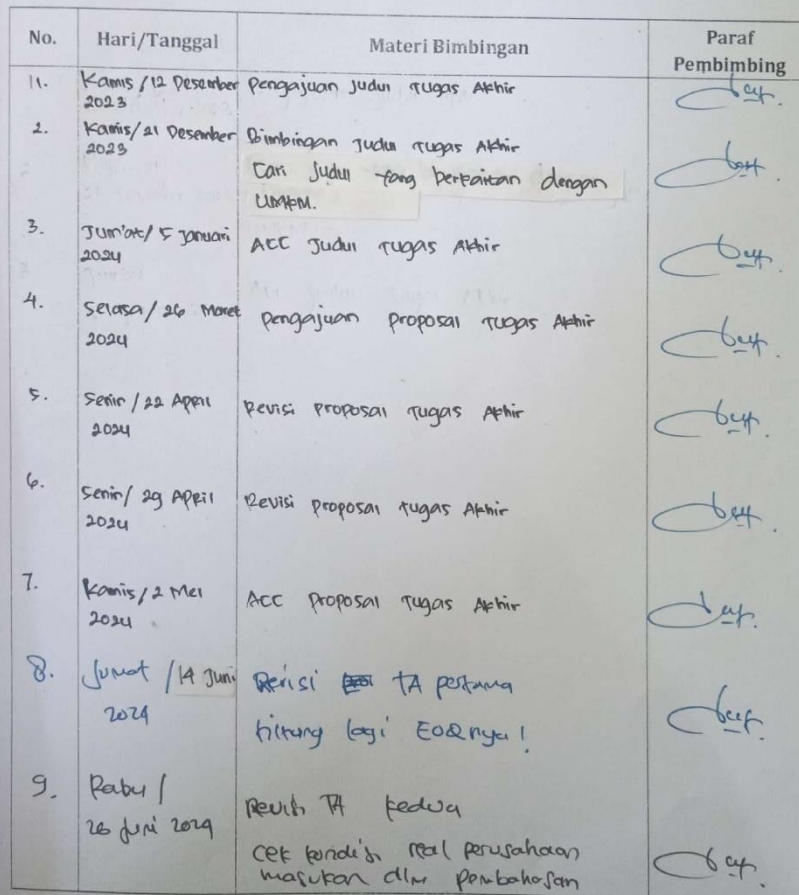 No. Hari/Tanggal Materi Bimbingan Paraf Pembimbing
1. Kamis/12 Desember 2023 Pengajuan Judul Tugas Akhir
2. Kamis/21 Desember 2023 Bimbingan Judul Tugas Akhir
Cari Judul yang berkaitan dengan
UMKM.
3. Jum'at/5 Januari 2024 ACC Judul Tugas Akhir
4. Selasa/26 Maret 2024 Pengajuan Proposal Tugas Akhir
5. Senin/22 April 2024 Revisi Proposal Tugas Akhir
6. Senin/29 April 2024 Revisi Proposal Tugas Akhir
7. Kamis/2 Mei 2024 ACC Proposal Tugas Akhir
8. Jumat/14 Juni 2024 Revisi TA pertama
hitung lagi EOQnya!
9. Rabu/26 Juni 2024 Revisi TA kedua
cek kondisi real perusahaan
masukan dlm pembahasan